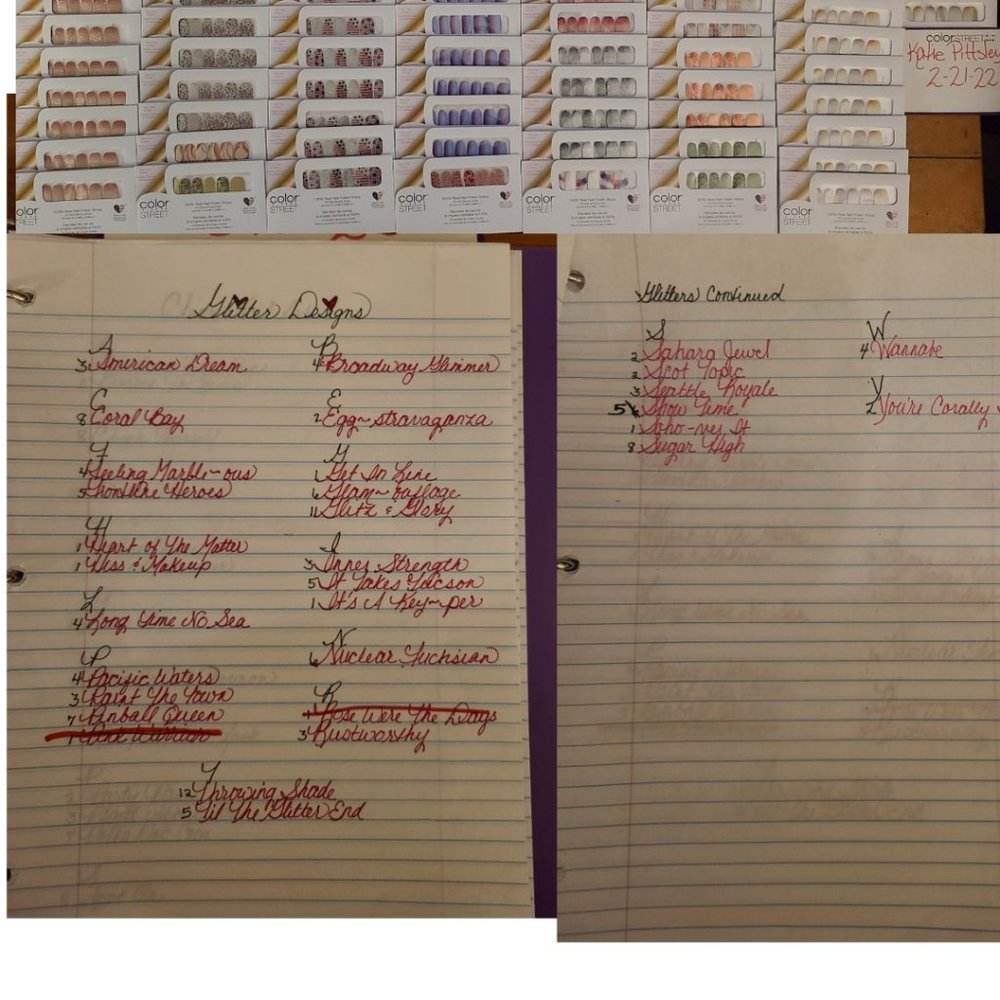 color STREET
Katie Pittsley
2-21-22
color STREET
color STREET
color STREET
color STREET
color STREET
color STREET
Glitter Designs
A
3 American Dream
B
4 Broadway Glimmer
C
8 Coral Bay
E
2 Egg~stravaganza
F
4 Feeling Marble~ous
5 Frontline Heroes
G
1 Get In Line
6 Glam~ouflage
11 Glitz & Glory
H
1 Heart of The Matter
1 Hiss & Makeup
I
3 Inner Strength
5 It Takes Tucson
1 It's A Key~per
L
4 Long Time No Sea
N
6 Nuclear Fuchsian
P
4 Pacific Waters
3 Paint The Town
7 Pinball Queen
1 Pink Warrior
R
1 Rose Were The Days
3 Rustworthy
T
12 Throwing Shade
5 Til The Glitter End
Glitters Continued
S
2 Sahara Jewel
2 Scot Topic
3 Seattle Royale
5 Show Time
1 Soho-ney It
8 Sugar High
W
4 Wannabe
Y
2 You're Corally